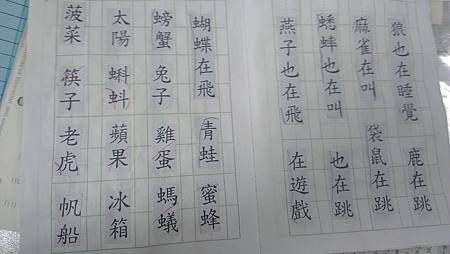 狼也在睡覺 鹿在跳
麻雀在叫 袋鼠在跳
蟋蟀也在叫 也在跳
燕子也在飛 在遊戲
蝴蝶在飛 青蛙 蜜蜂
螃蟹 兔子 雞蛋 螞蟻
太陽 蝌蚪 蘋果 冰箱
菠菜 筷子 老虎 帆船